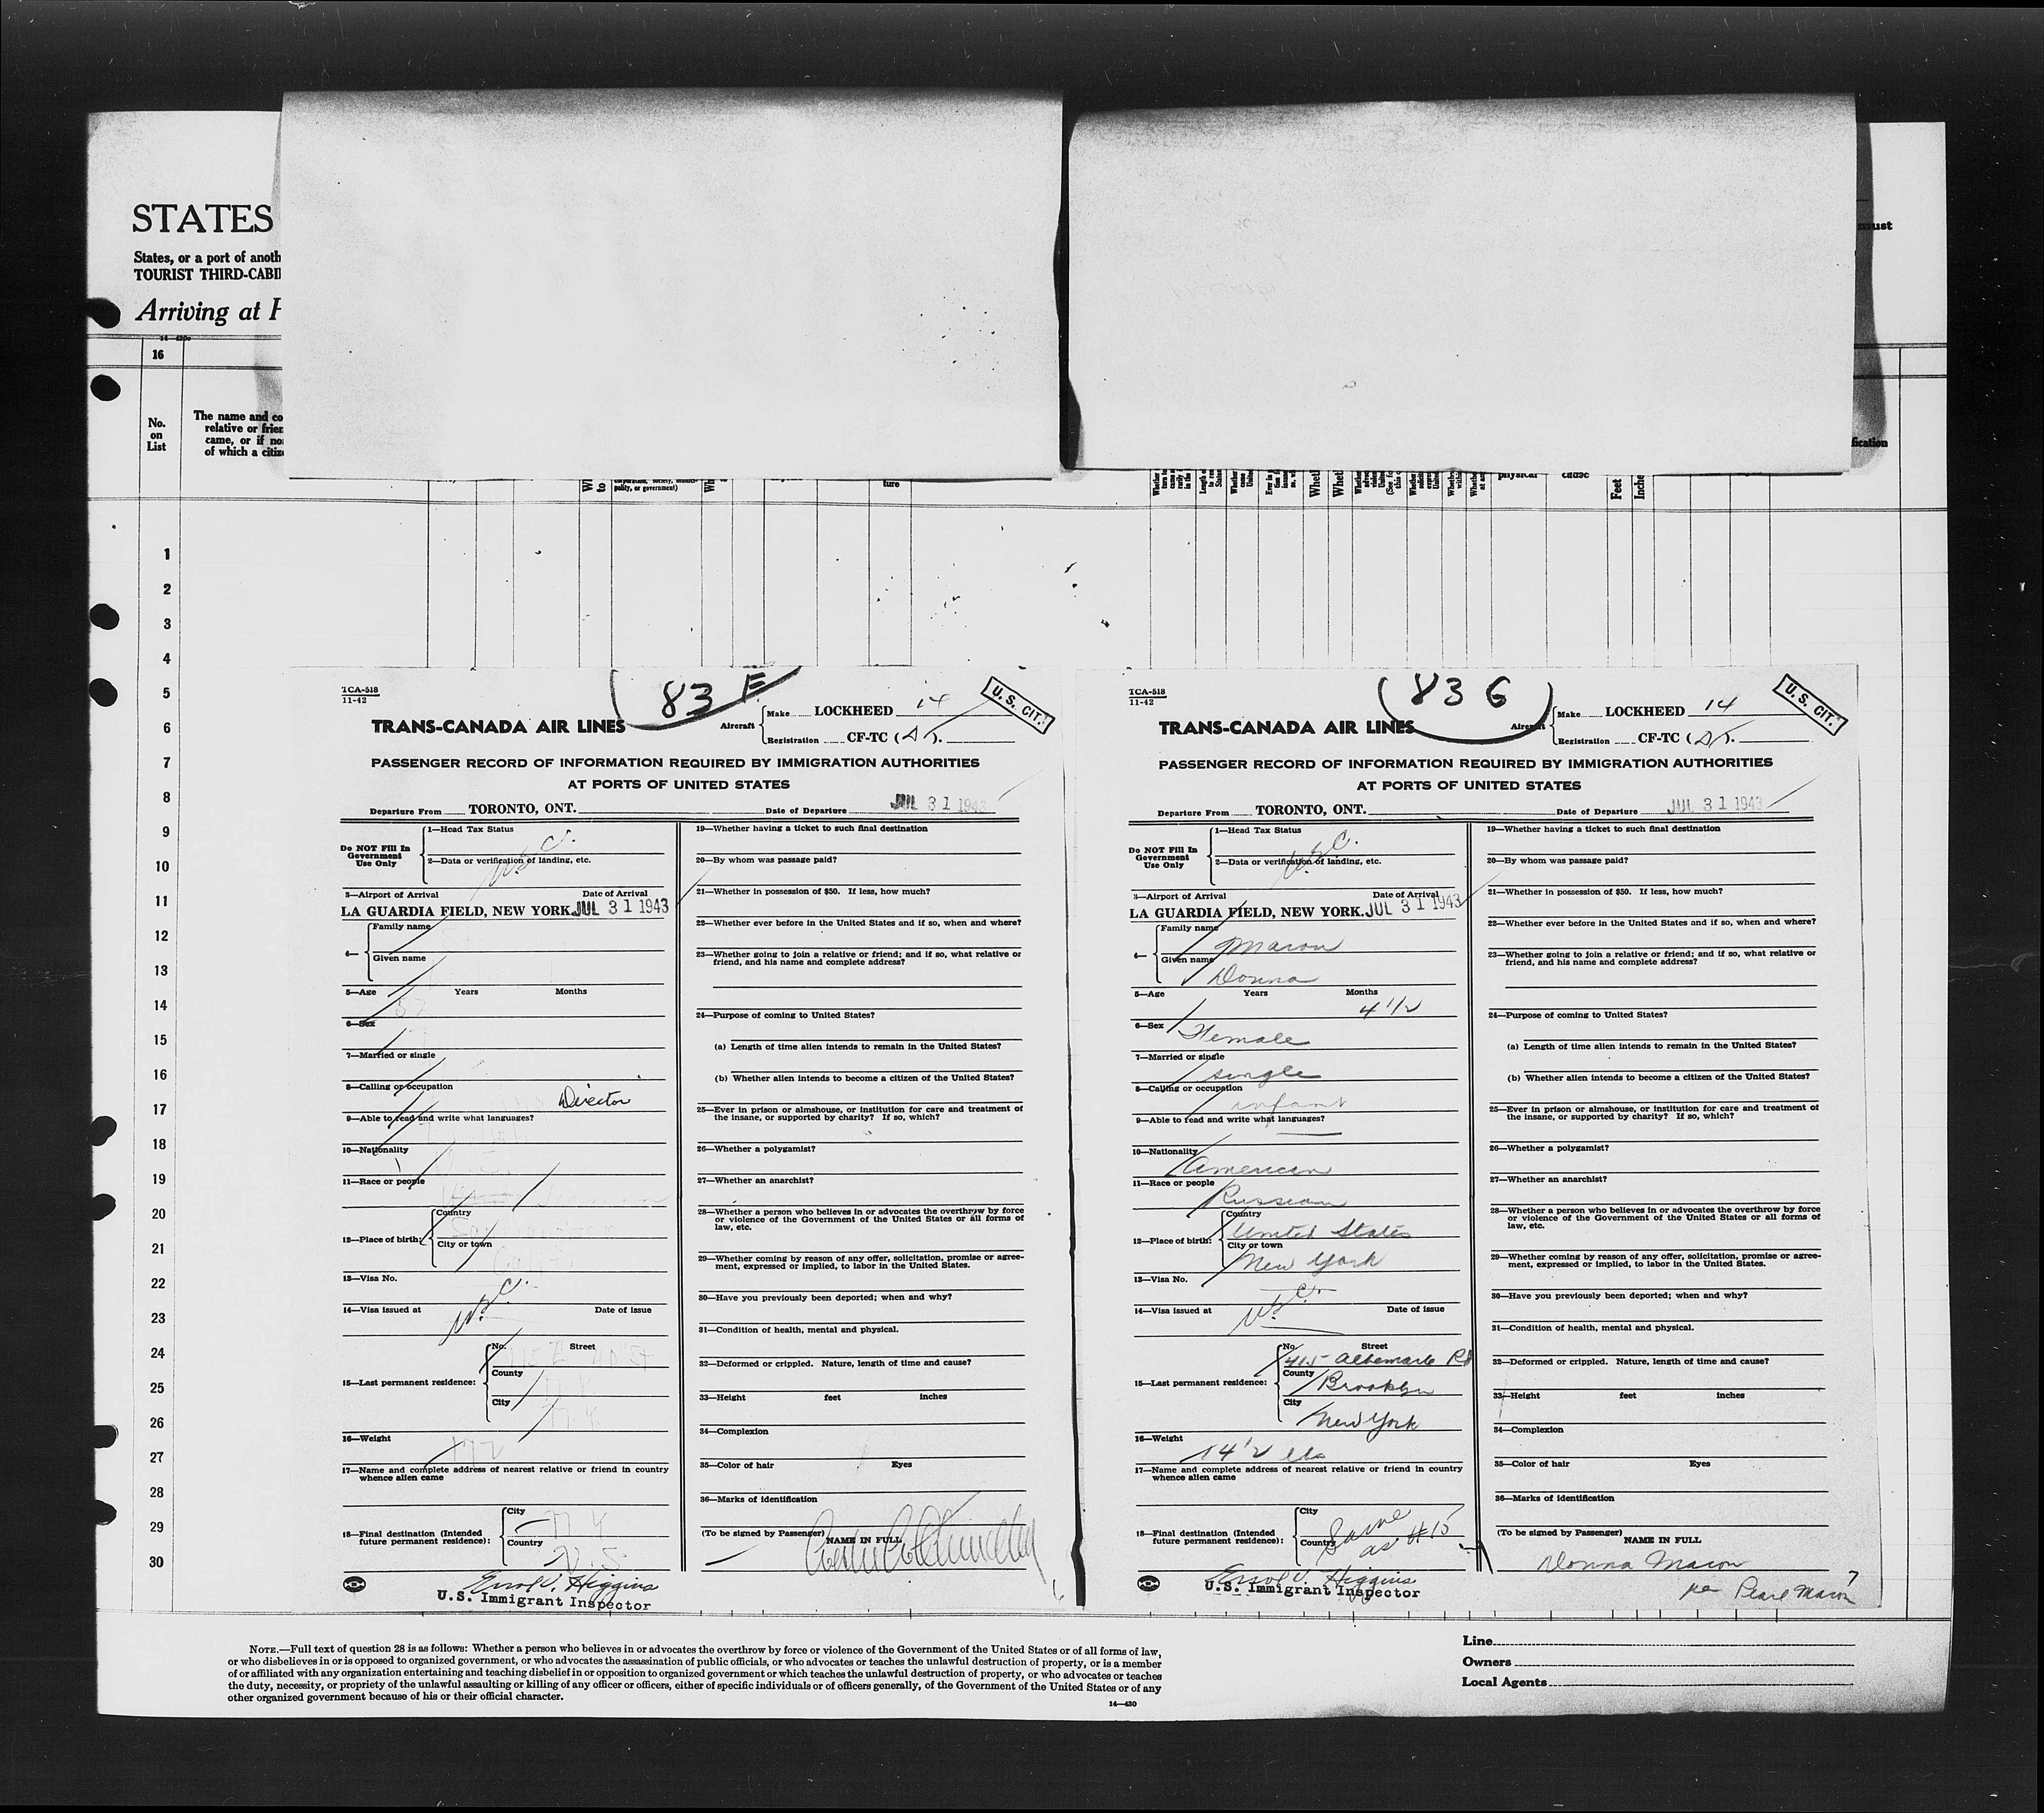 STATES
States, or a port of anoth
TOURIST THIRD-CABI
Arriving at
must
16
No.
on
List
The name and co
relative or frien
came, or if no
of which a citiz
polity, or government)
ture
physical
cause
Feet
Inche
fication
1
2
3
4
5
6
7
8
9
10
11
12
13
14
15
16
17
18
19
20
21
22
23
24
25
26
27
28
29
30
TCA-518
11-42
83 F
U. S. CIT.
TRANS-CANADA AIR LINES
Aircraft
Make LOCKHEED 14
Registration CF-TC (
PASSENGER RECORD OF INFORMATION REQUIRED BY IMMIGRATION AUTHORITIES
AT PORTS OF UNITED STATES
Departure From TORONTO, ONT. Date of Departure JUL 31 1943
Do NOT Fill In
Government
Use Only
1—Head Tax Status
2—Data or verification of landing, etc.
U.S.C.
3—Airport of Arrival Date of Arrival
LA GUARDIA FIELD, NEW YORK. JUL 31 1943
4—
Family name
Given name
5—Age Years Months
6—Sex
7—Married or single
8—Calling or occupation
Director
9—Able to read and write what languages?
10—Nationality
11—Race or people
12—Place of birth:
Country
City or town
13—Visa No.
U.S.C.
14—Visa issued at Date of issue
15—Last permanent residence:
No. Street
County
City
N.Y.
16—Weight
17—Name and complete address of nearest relative or friend in country
whence alien came
18—Final destination (Intended
future permanent residence):
City
N.Y.
Country
U.S.
Errol V. Higgins
U.S. Immigrant Inspector
19—Whether having a ticket to such final destination
20—By whom was passage paid?
21—Whether in possession of $50. If less, how much?
22—Whether ever before in the United States and if so, when and where?
23—Whether going to join a relative or friend; and if so, what relative or
friend, and his name and complete address?
24—Purpose of coming to United States?
(a) Length of time alien intends to remain in the United States?
(b) Whether alien intends to become a citizen of the United States?
25—Ever in prison or almshouse, or institution for care and treatment of
the insane, or supported by charity? If so, which?
26—Whether a polygamist?
27—Whether an anarchist?
28—Whether a person who believes in or advocates the overthrow by force
or violence of the Government of the United States or all forms of
law, etc.
29—Whether coming by reason of any offer, solicitation, promise or agree-
ment, expressed or implied, to labor in the United States.
30—Have you previously been deported; when and why?
31—Condition of health, mental and physical.
32—Deformed or crippled. Nature, length of time and cause?
33—Height feet inches
34—Complexion
35—Color of hair Eyes
36—Marks of identification
(To be signed by Passenger)
NAME IN FULL
TCA-518
11-42
83 G
U. S. CIT.
TRANS-CANADA AIR LINES
Aircraft
Make LOCKHEED 14
Registration CF-TC (
PASSENGER RECORD OF INFORMATION REQUIRED BY IMMIGRATION AUTHORITIES
AT PORTS OF UNITED STATES
Departure From TORONTO, ONT. Date of Departure JUL 31 1943
Do NOT Fill In
Government
Use Only
1—Head Tax Status
2—Data or verification of landing, etc.
U.S.C.
3—Airport of Arrival Date of Arrival
LA GUARDIA FIELD, NEW YORK. JUL 31 1943
4—
Family name
Macon
Given name
Donna
5—Age Years Months
4 1/2
6—Sex
Female
7—Married or single
single
8—Calling or occupation
infant
9—Able to read and write what languages?
10—Nationality
American
11—Race or people
Russian
12—Place of birth:
Country
United States
City or town
New York
13—Visa No.
U.S.C.
14—Visa issued at Date of issue
15—Last permanent residence:
No. Street
415 Albemarle Rd
County
Brooklyn
City
New York
16—Weight
14 1/2 lbs
17—Name and complete address of nearest relative or friend in country
whence alien came
18—Final destination (Intended
future permanent residence):
City
Country
Same
as #15
Errol V. Higgins
U.S. Immigrant Inspector
19—Whether having a ticket to such final destination
20—By whom was passage paid?
21—Whether in possession of $50. If less, how much?
22—Whether ever before in the United States and if so, when and where?
23—Whether going to join a relative or friend; and if so, what relative or
friend, and his name and complete address?
24—Purpose of coming to United States?
(a) Length of time alien intends to remain in the United States?
(b) Whether alien intends to become a citizen of the United States?
25—Ever in prison or almshouse, or institution for care and treatment of
the insane, or supported by charity? If so, which?
26—Whether a polygamist?
27—Whether an anarchist?
28—Whether a person who believes in or advocates the overthrow by force
or violence of the Government of the United States or all forms of
law, etc.
29—Whether coming by reason of any offer, solicitation, promise or agree-
ment, expressed or implied, to labor in the United States.
30—Have you previously been deported; when and why?
31—Condition of health, mental and physical.
32—Deformed or crippled. Nature, length of time and cause?
33—Height feet inches
34—Complexion
35—Color of hair Eyes
36—Marks of identification
(To be signed by Passenger)
NAME IN FULL
Donna Macon
per Pearl Macon
7
NOTE.—Full text of question 28 is as follows: Whether a person who believes in or advocates the overthrow by force or violence of the Government of the United States or of all forms of law,
or who disbelieves in or is opposed to organized government, or who advocates the assassination of public officials, or who advocates or teaches the unlawful destruction of property, or is a member
of or affiliated with any organization entertaining and teaching disbelief in or opposition to organized government or which teaches the unlawful destruction of property, or who advocates or teaches
the duty, necessity, or propriety of the unlawful assaulting or killing of any officer or officers, either of specific individuals or of officers generally, of the Government of the United States or of any
other organized government because of his or their official character.
14—430
Line
Owners
Local Agents